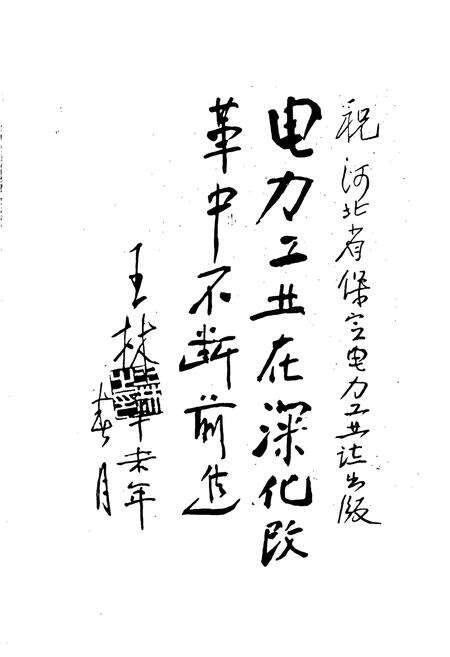 祝河北省保定电力工业志出版
电力工业在深化改
革中不断前进
王林
辛未年
春月